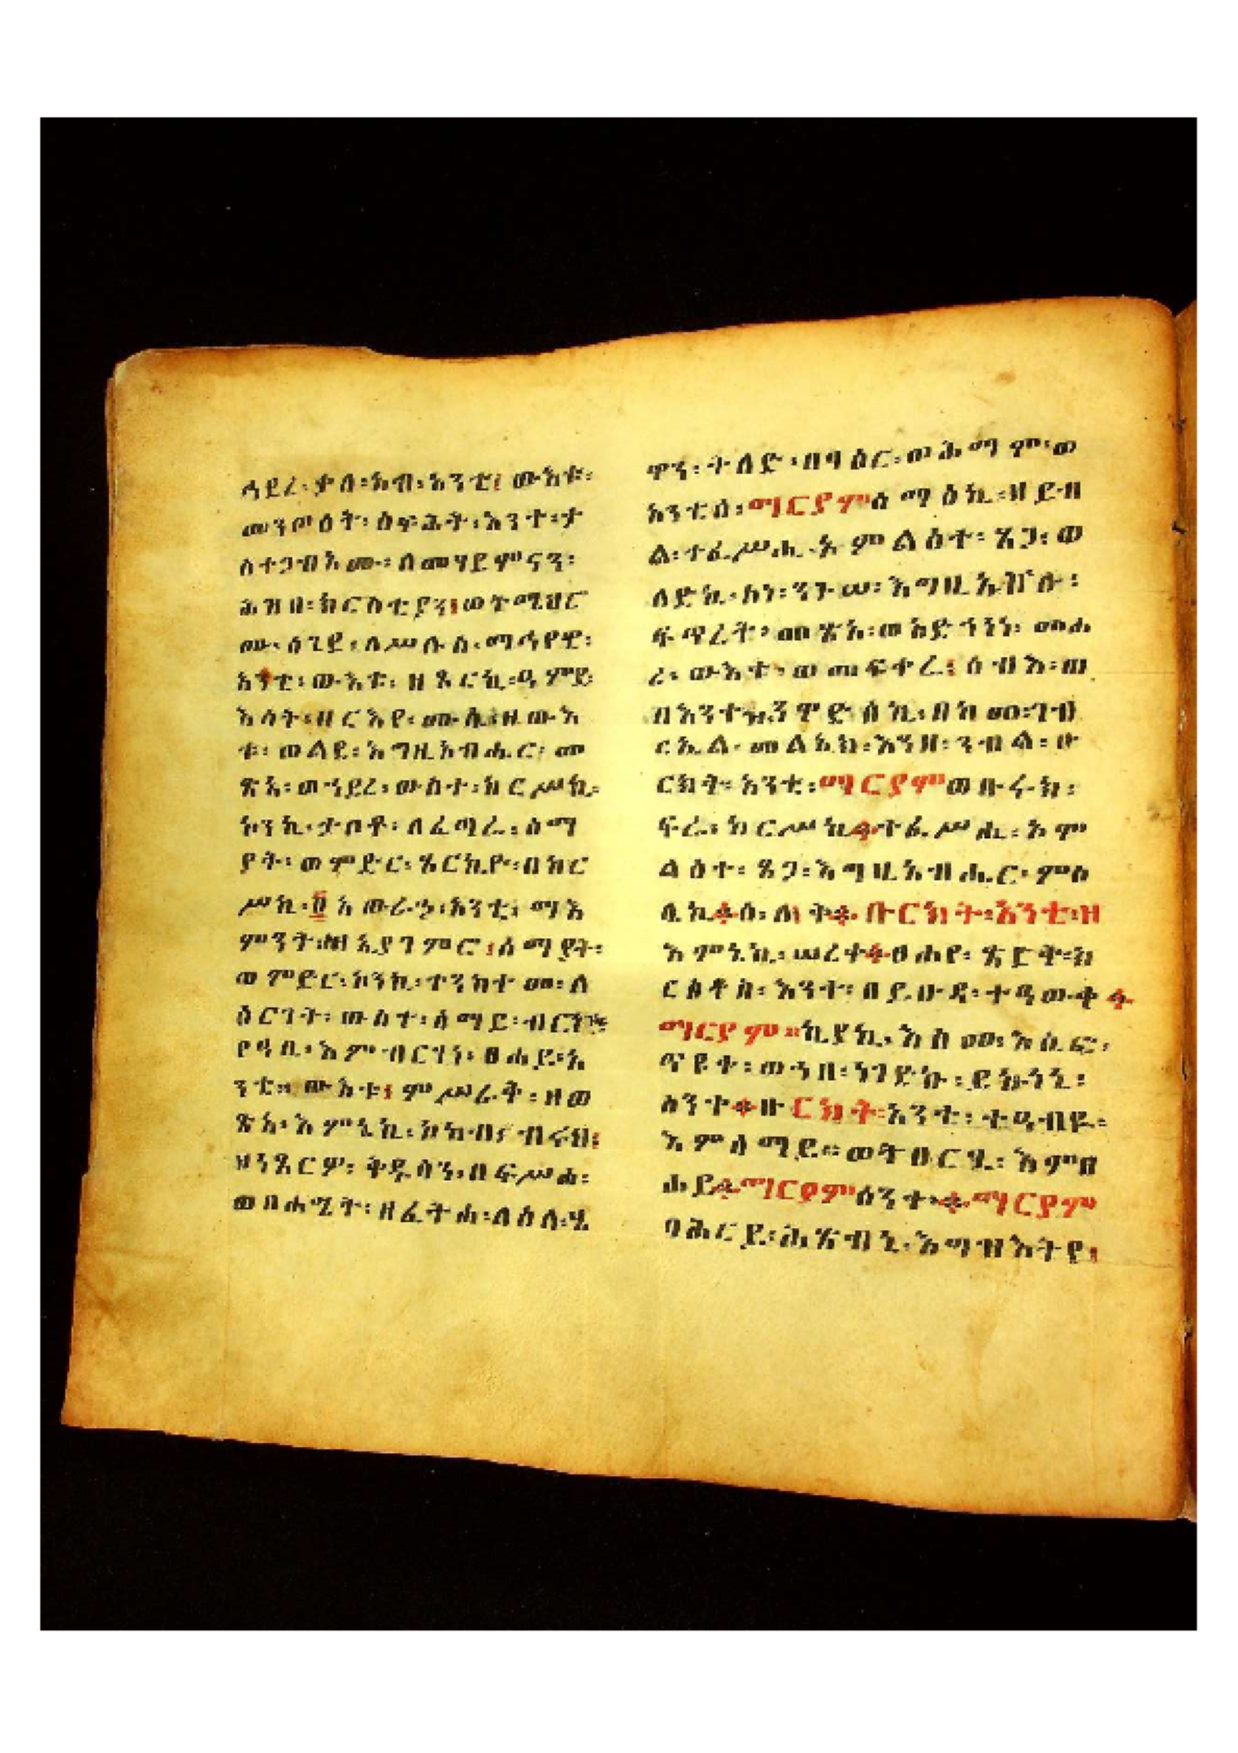 ኀደረ፡ ቃለ፡ አብ፡ አንቲ፤ ውእቱ፡
መንጦዕት፡ ስፍሕት፡ እንተ፡ ታ
ስተጋብአሙ፡ ለመሃይምናን፡
ሕዝበ፡ ክርስቲያን፤ ወትሜህሮ
ሙ፡ ሰጊደ፡ ለሥሉስ፡ ማኅየዊ፡
አንቲ፡ ውእቱ፡ ዘጾርኪ፡ ዓምደ
እሳት፡ ዘርእየ፡ ሙሴ፡ ዘውእ
ቱ፡ ወልደ፡ እግዚአብሔር፡ መ
ጽአ፡ ወኀደረ፡ ውስተ፡ ከርሥኪ፡
ኮንኪ፡ ታቦቶ፡ ለፈጣሪ፡ ሰማ
ያት፡ ወምድር፡ ጾርኪዮ፡ በከር
ሥኪ፡ ፱ አውራኃ፡ አንቲ፡ ማእ
ምንት፡ ዘኢያገምሮ፤ ሰማያት፡
ወምድር፡ ኮንኪ፡ ተንከተመ፡ ለ
ዕርገት፡ ውስተ፡ ሰማይ፡ ብርሃን
የዓቢ፡ እምብርሃነ፡ ፀሐይ፡ አ
ንቲ፡ ውእቱ፤ ምሥራቅ፡ ዘወ
ጽአ፡ እምኔኪ፡ ኮከብ፡ ብሩህ፤
ዘነጸርዎ፡ ቅዱሳን፡ በፍሥሐ፡
ወበሐሤት፡ ዘፈትሐ፡ ለዕለ፡ ሄ
ዋን፡ ትለድ፡ በፃዕር፡ ወሕማም፡ ወ
አንቲሰ፡ ማርያም ሰማዕኪ፡ ዘይብ
ል፡ ተፈሥሒ፡ ኦምልዕተ፡ ጸጋ፡ ወ
ለድኪ፡ ለነ፡ ንጉሠ፡ እግዚአ ኵሉ፡
ፍጥረት፡ መጽአ፡ ወአድኀነነ፡ መሐ
ሪ፡ ውእቱ፡ ወመፍቀሬ፤ ሰብእ፡ ወ
በእንተዝ ንዌድሰኪ፡ በከመ፡ ገብ
ርኤል፡ መልአክ፡ እንዘ፡ ንብል፡ ቡ
ርክት፡ አንቲ፡ ማርያም ወቡሩክ፡
ፍሬ፡ ከርሥኪ ተፈሥሒ፡ ኦም
ልዕተ፡ ጸጋ፡ እግዚአብሔር፡ ምስ
ሌኪ ሰ፡ ለ፡ ቅ ቡርክት፡ አንቲ፡ ዘ
እምኔኪ፡ ሠረቀ ፀሐየ፡ ጽድቅ፡ ክ
ርስቶስ፡ እንተ፡ በይሁዳ፡ ተዓውቀ
ማርያም። ኪያኪ፡ እስመ፡ አሴፎ፡
ጥዩቀ፡ ወኀበ፡ ነገድኩ፡ ይኩነኒ፡
ስንቀ ቡርክት፡ አንተ፡ ተዓብዪ፡
እምሰማይ። ወትፀርሂ፡ እምፀ
ሐይ ማርያም ስንቀ ማርያም
ባሕርይ፡ ሕፅብኒ፡ እግዝእትየ፤